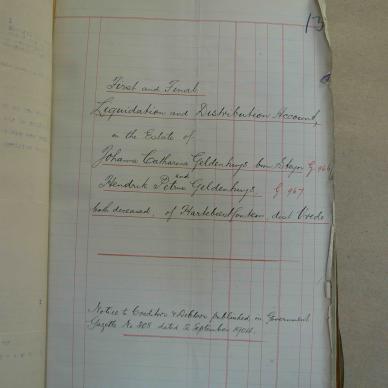 13
First and Final
Liquidation and Distribution Account,
in the Estate of
Johanna Catharina Geldenhuys born Steyn G. 966
and
Hendrik Petrus Geldenhuys. G 967
both deceased, of Hartebeestfontein, dist Vrede
Notice to Creditors & Debtors published in Government
Gazette No. 308 dated 2 September 1904.